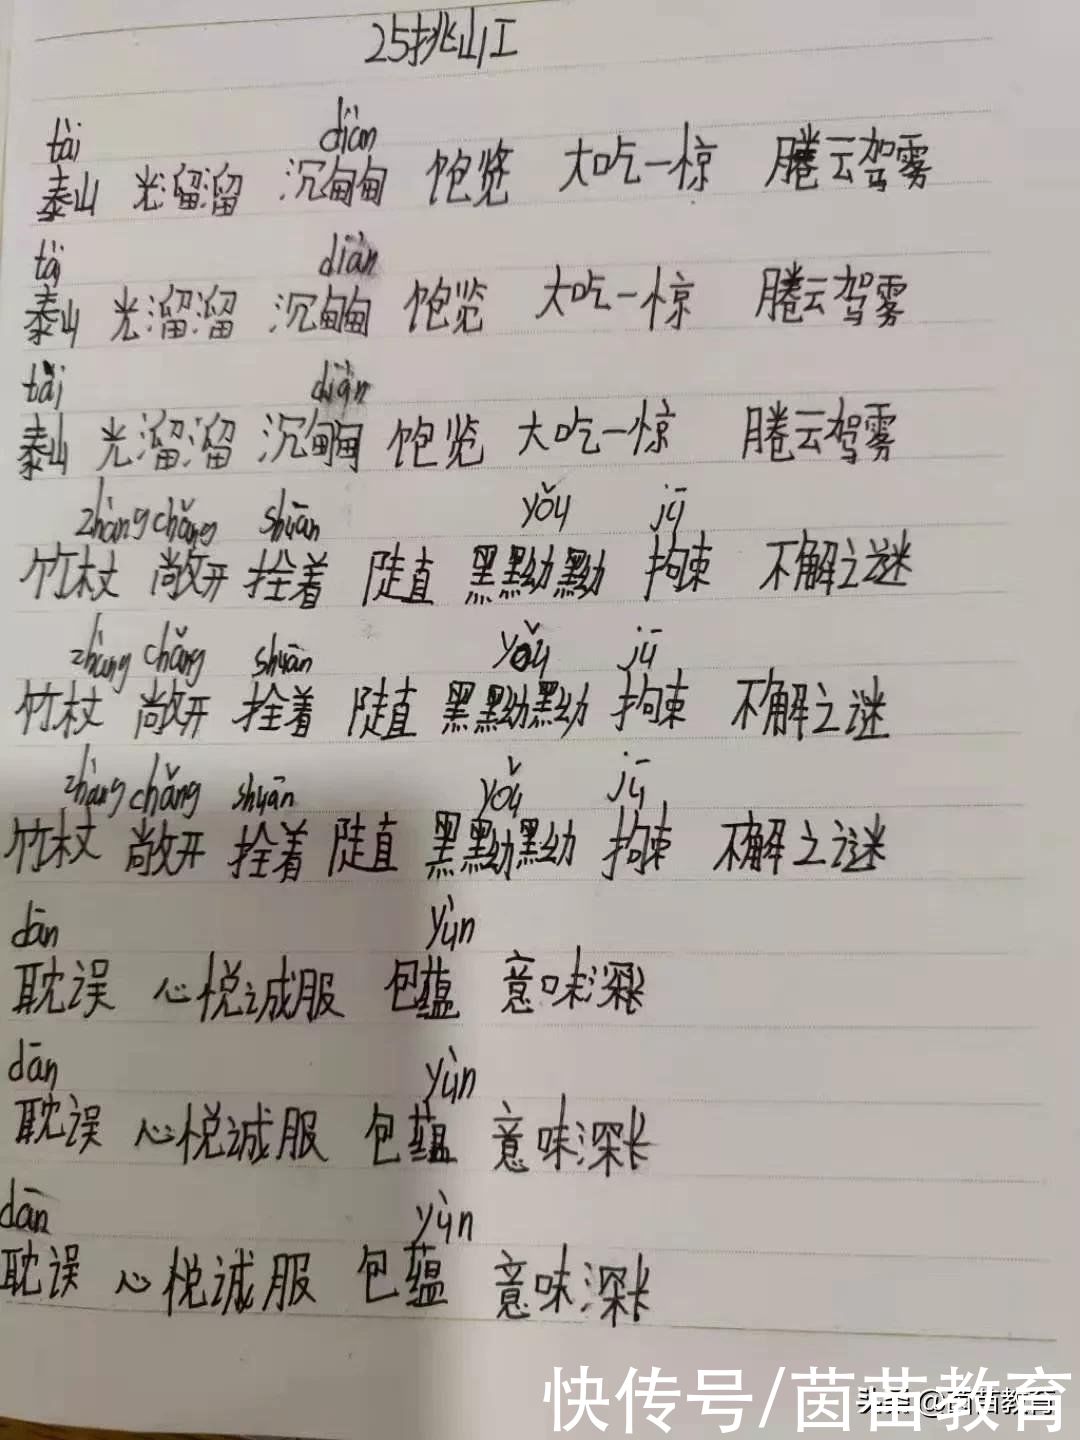 25挑山工
tài diān
泰山 光溜溜 沉甸甸 饱览 大吃一惊 腾云驾雾
tài diàn
泰山 光溜溜 沉甸甸 饱览 大吃一惊 腾云驾雾
tài diàn
泰山 光溜溜 沉甸甸 饱览 大吃一惊 腾云驾雾
zhàng chǎng shuān yǒu jū
竹杖 敞开 拴着 陡直 黑黝黝 拘束 不解之谜
zhàng chǎng shuān yǒu jū
竹杖 敞开 拴着 陡直 黑黝黝 拘束 不解之谜
zhàng chǎng shuān yǒu jū
竹杖 敞开 拴着 陡直 黑黝黝 拘束 不解之谜
dān yùn
耽误 心悦诚服 包蕴 意味深长
dān yùn
耽误 心悦诚服 包蕴 意味深长
dān yùn
耽误 心悦诚服 包蕴 意味深长
快传号/茵苗教育
头条 @茵苗教育